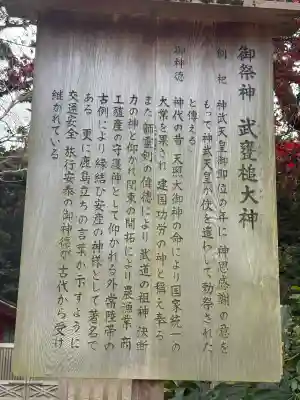 御祭神 武甕槌大神
創祀 神武天皇御即位の年に、神恩感謝の意を
もって神武天皇が使を遣わして勅祭された
と傳える。
御神徳
神代の昔、天照大御神の命により国家統一の
大業を果され 建国功労の神と稱え奉る。
また 韴霊剣の偉徳により 武道の祖神 決断
力の神と仰がれ関東の開拓により 農漁業、商
工殖産の守護神として仰がれる外 常陸帯の
古例により 縁結び安産の神様として著名で
ある。更に鹿島立ちの言葉が示すように
交通安全 旅行安泰の御神徳が古代から受け
継がれている。